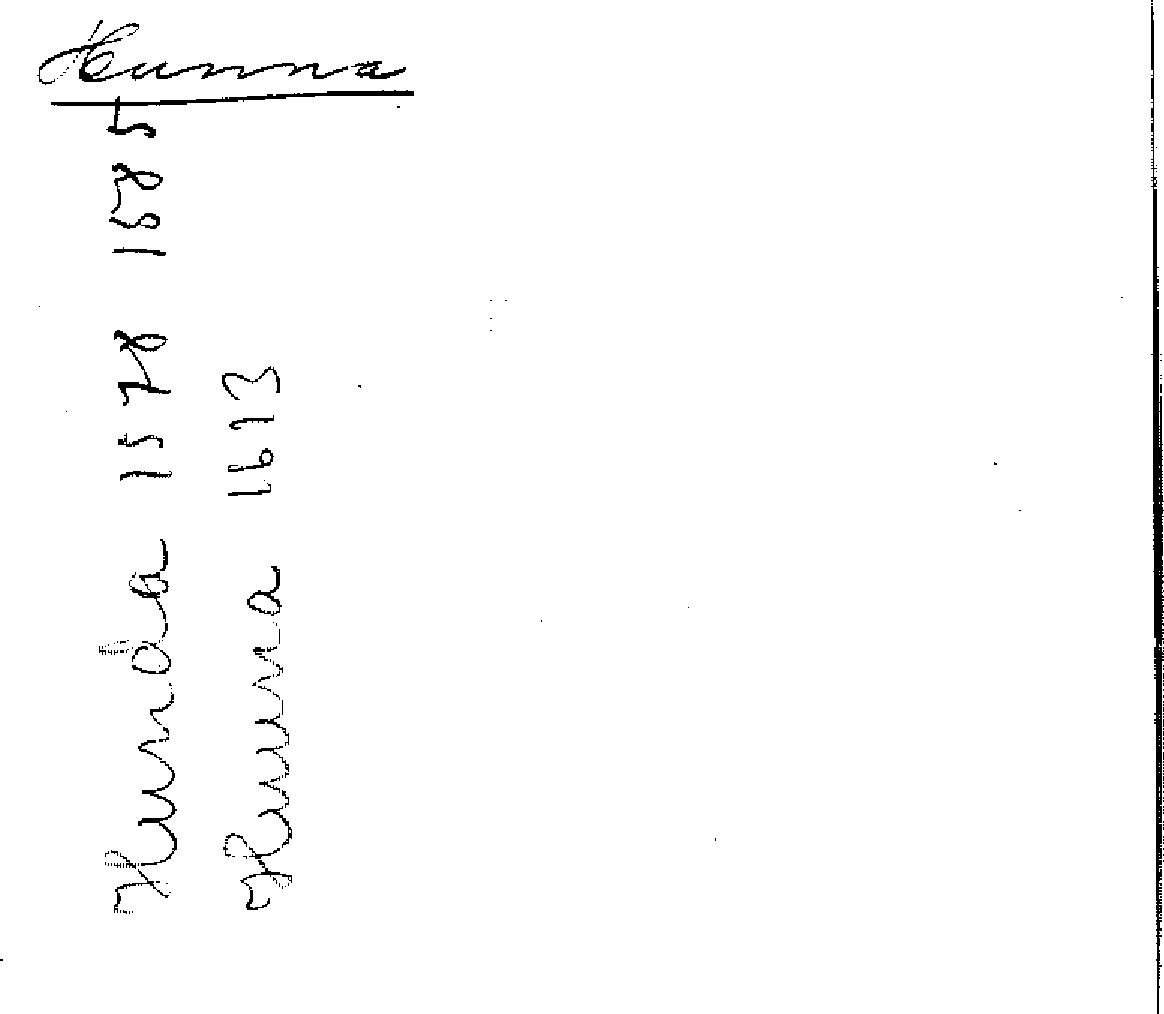 Hunna
Hunda 1578 1585
Hunna 1613